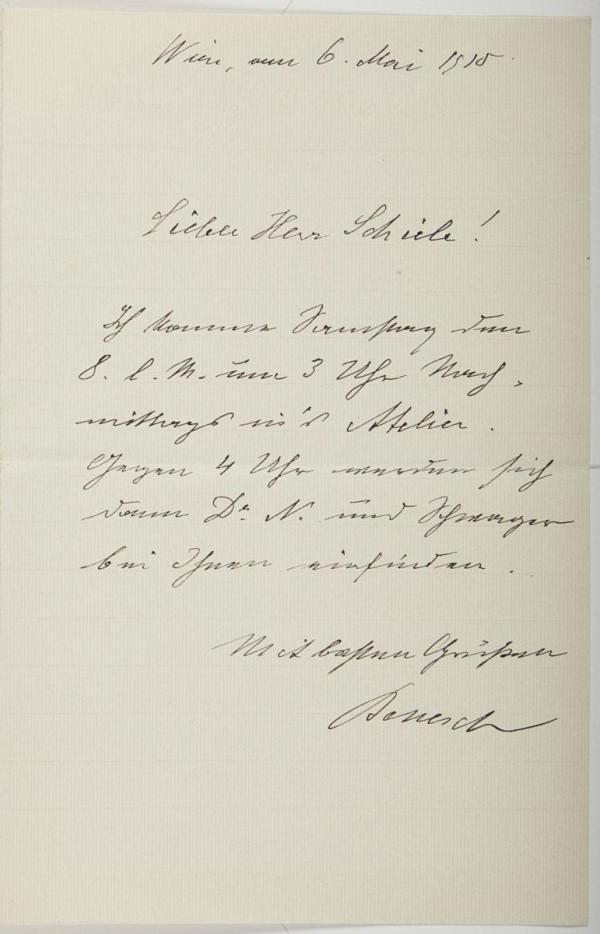 Wien, am 6. Mai 1915
Lieber Herr Schiele!
Ich komme Samstag den
8. l. M. um 3 Uhr Nach-
mittags in's Atelier.
Gegen 4 Uhr werden sich
dann Dr. N. und Schwager
bei Ihnen einfinden.
Mit besten Grüßen
Benesch